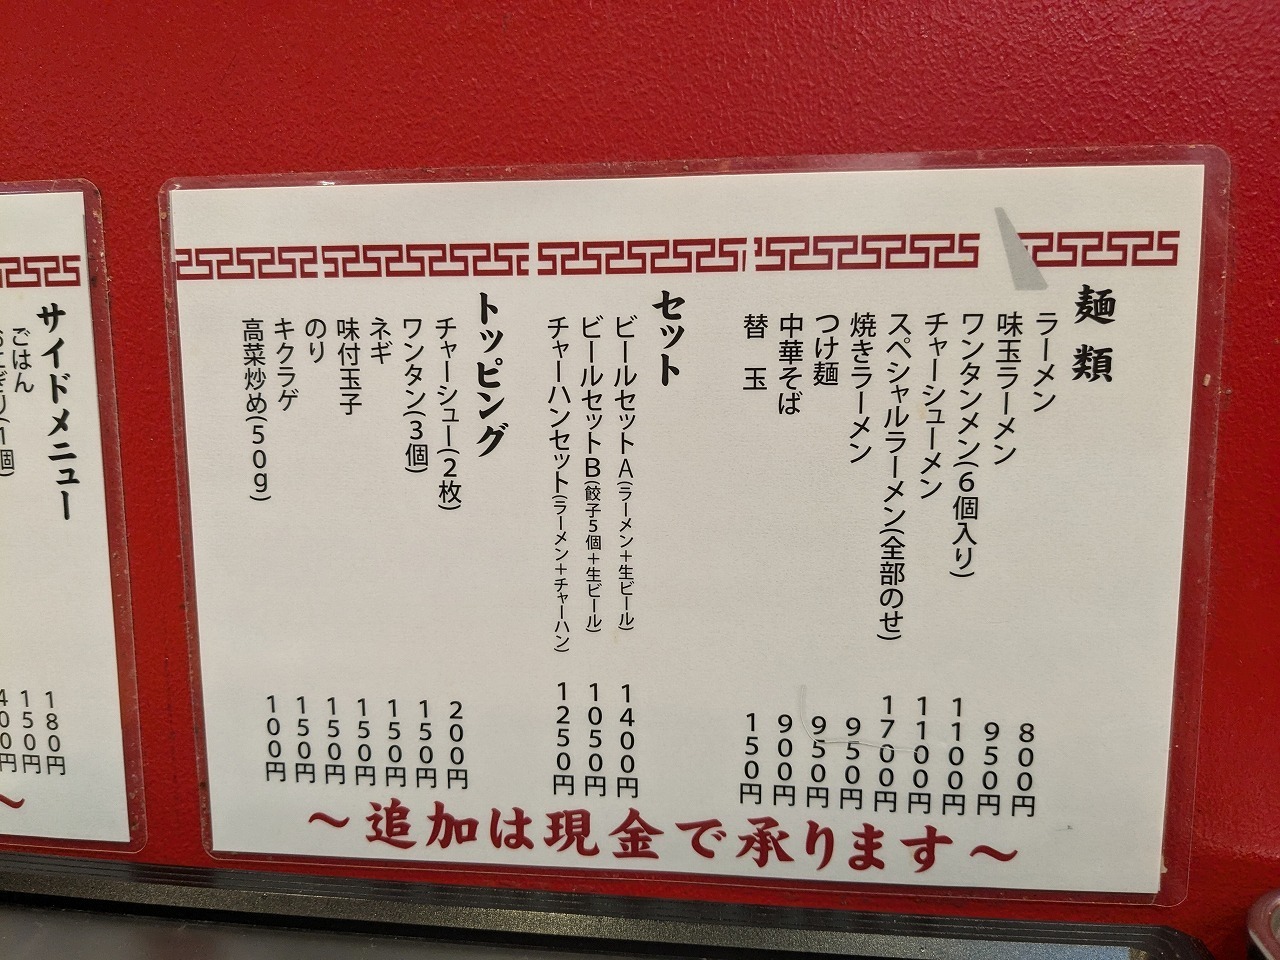 麺類
ラーメン 800円
味玉ラーメン 950円
ワンタンメン(6個入り) 1100円
チャーシューメン 1100円
スペシャルラーメン(全部のせ) 1700円
焼きラーメン 950円
つけ麺 950円
中華そば 900円
替玉 150円
セット
ビールセットA(ラーメン+生ビール) 1400円
ビールセットB(餃子5個+生ビール) 1050円
チャーハンセット(ラーメン+チャーハン) 1250円
トッピング
チャーシュー(2枚) 200円
ワンタン(3個) 150円
ネギ 150円
味付玉子 150円
のり 150円
キクラゲ 150円
高菜炒め(50g) 100円
〜追加は現金で承ります〜
サイドメニュー
ごはん 180円
おにぎり(1個) 150円
400円
〜